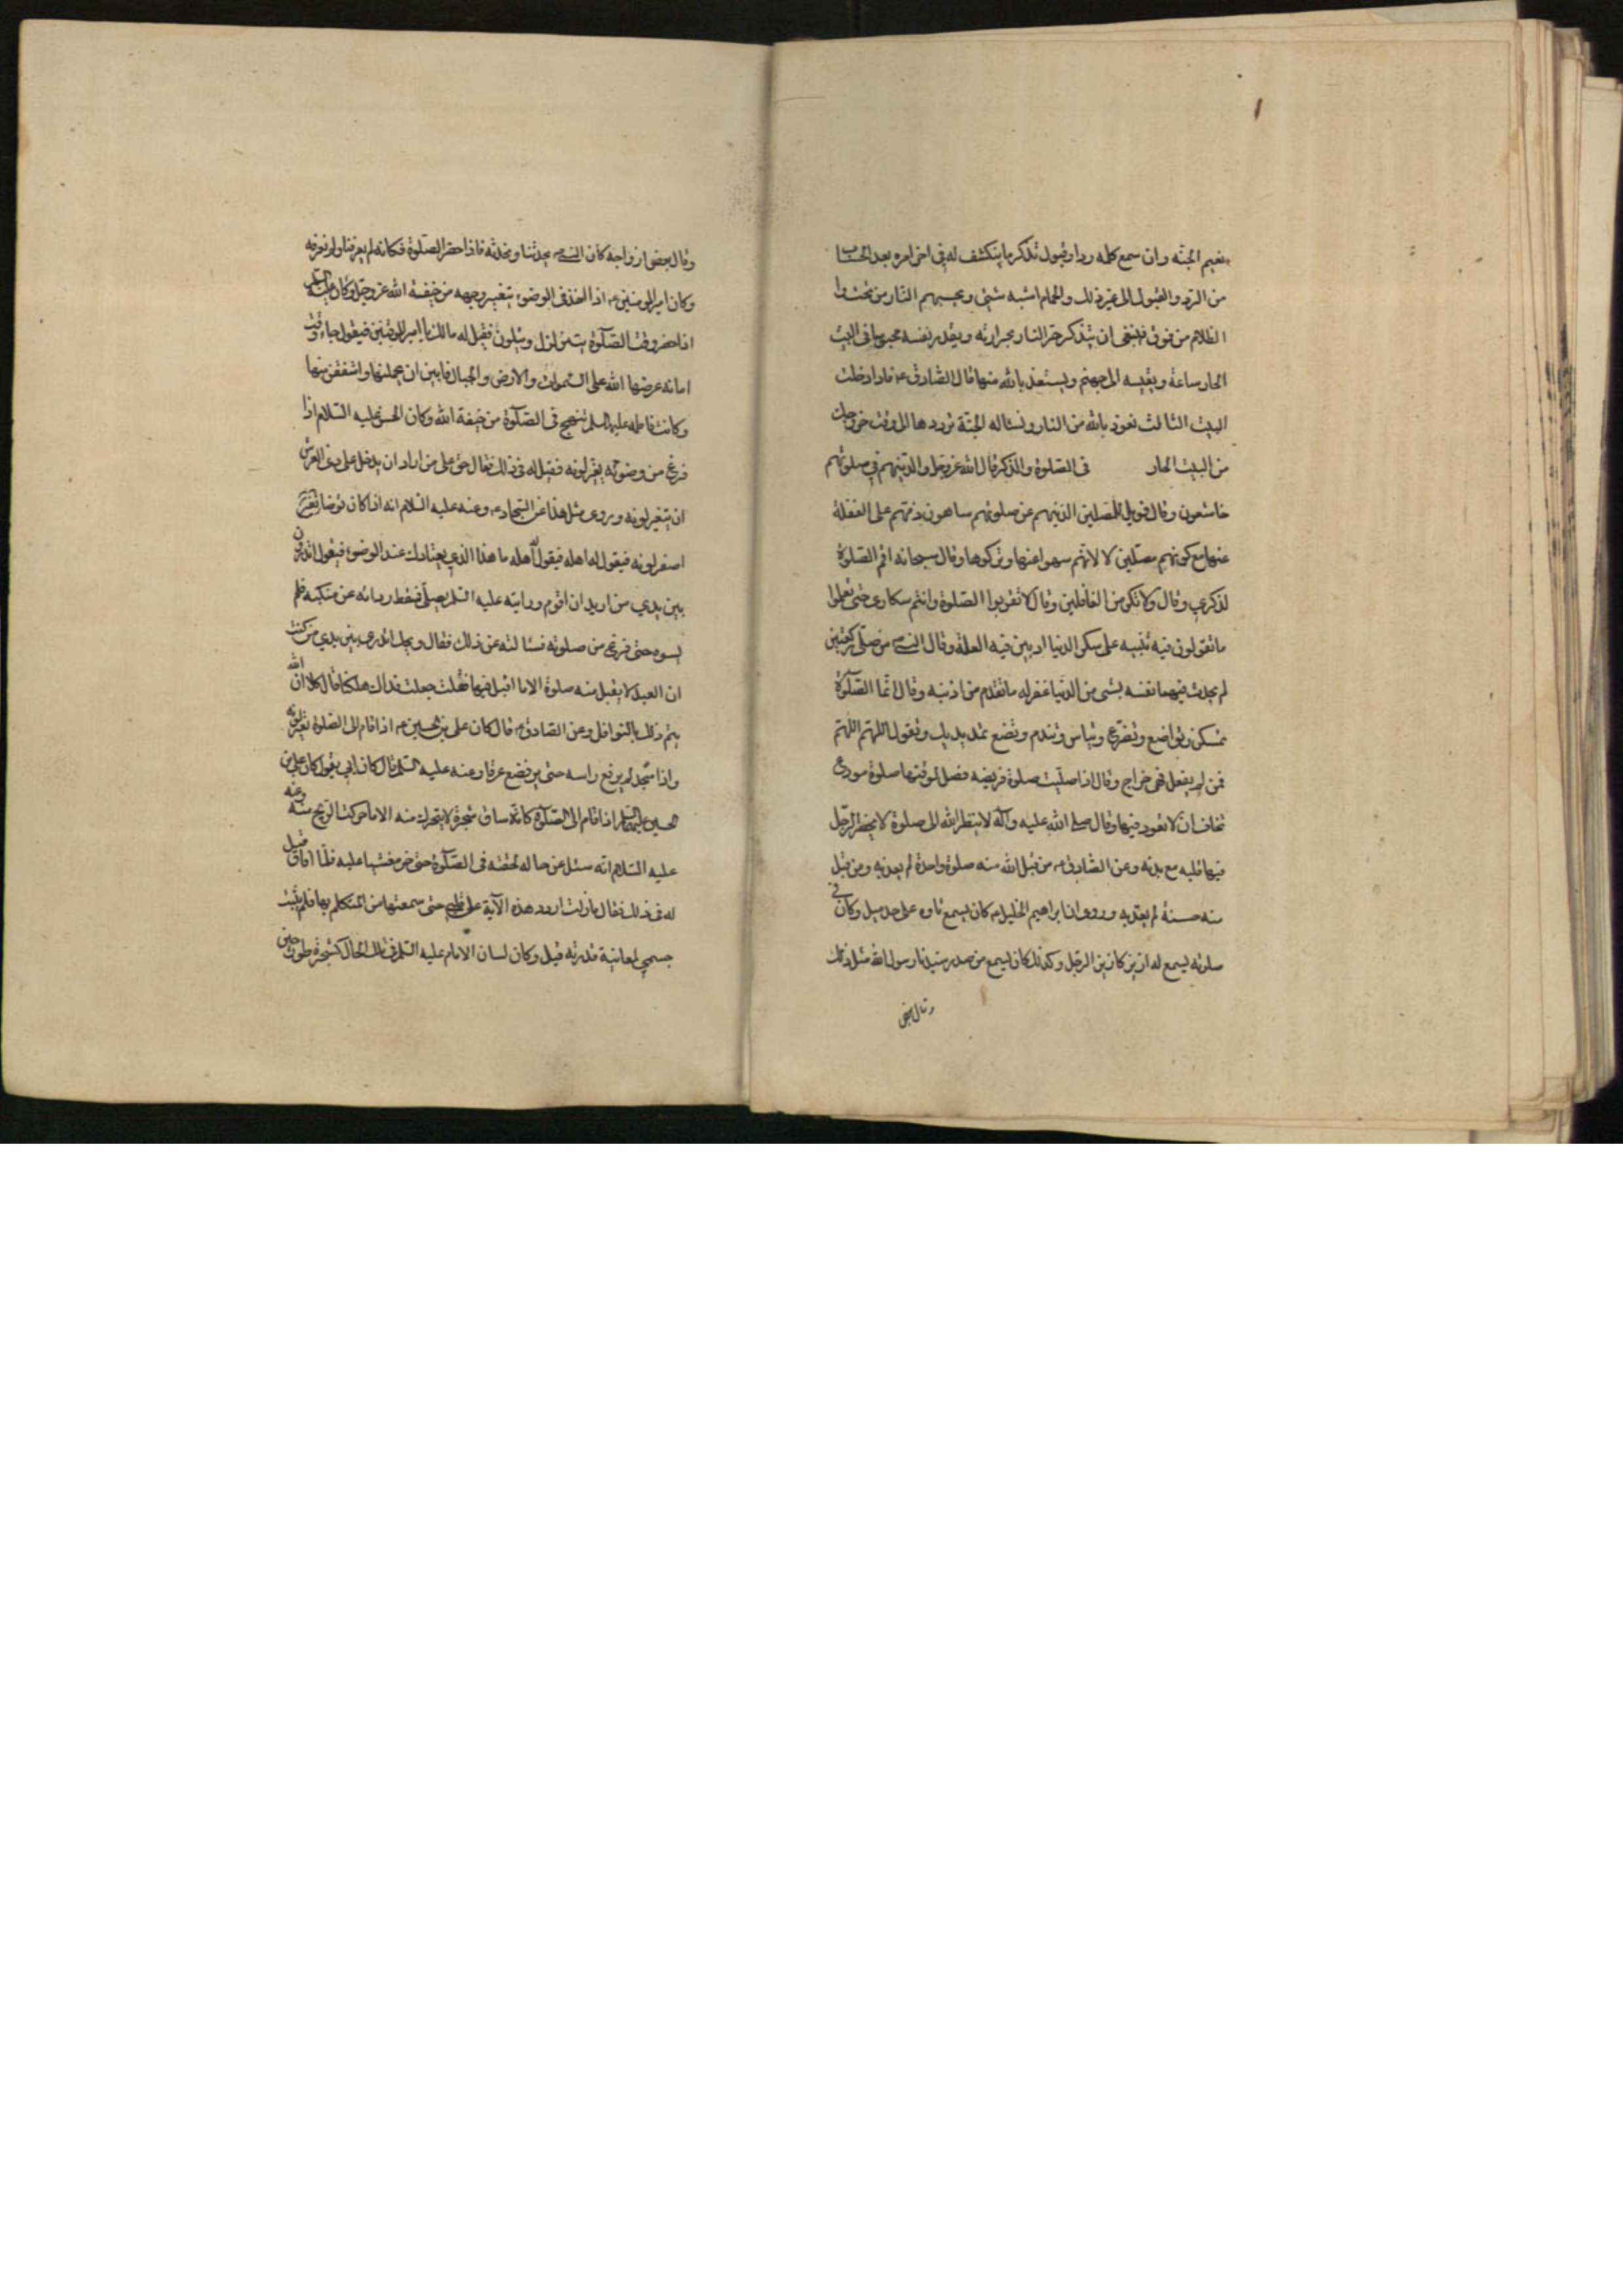 نعيم الجنة وان سمع كلمة رد او قبول تذكر ما ينكشف له في اخر امره بعد الحساب
من الرد والقبول الى غير ذلك والحمام اشبه شيء بجهنم النار من تحت و
الظلام من فوق فينبغي ان يتذكر حر النار بحرارته ويقدر نفسه محبوسا في البيت
الحار ساعة ويقيسه الى جهنم ويستعذ بالله منها قال الصادق ع فاذا دخلت
البيت الثالث نعوذ بالله من النار ونساله الجنة ترددها الى وقت خروجك
من البيت الحار في الصلوة والذكر قال الله عز وجل والذينهم في صلوتهم
خاشعون وقال فويل للمصلين الذينهم عن صلوتهم ساهون ذمهم على الغفلة
عنها مع كونهم مصلين لا لانهم سهوا عنها وتركوها وقال سبحانه اقم الصلوة
لذكري وقال ولا تكن من الغافلين وقال لا تقربوا الصلوة وانتم سكارى حتى تعلموا
ما تقولون فيه تنبيه على سكر الدنيا اذ بين فيه العلة وقال النبي ص من صلى ركعتين
لم يحدث فيهما نفسه بشيء من الدنيا غفر له ما تقدم من ذنبه وقال انما الصلوة
تمسكن وتواضع وتضرع وتباس وتندم وتضع تمد يديك وتقول اللهم اللهم
فمن لم يفعل فهي خداج وقال اذا صليت صلوة فريضه فصل لوقتها صلوة مودع
تخاف ان لا تعود فيها وقال صلى الله عليه وآله لا ينظر الله الى صلوة لا يحضر الرجل
فيها قلبه مع بدنه وعن الصادق ع من قبل الله منه صلوة واحدة لم يعذبه ومن قبل
منه حسنة لم يعذبه وروى ان ابراهيم الخليل ع كان يسمع تاوهه على حد ميل وكان في
صلوته يسمع له ازيز كازيز المرجل وكذلك كان يسمع من صدر سيدنا رسول الله مثل ذلك
وقال بعض
وقال بعض ازواجه كان النبي ص يحدثنا ونحدثه فاذا حضر الصلوة فكانه لم يعرفنا ولم نعرفه
وكان امير المؤمنين ع اذا اخذ في الوضوء يتغير وجهه من خيفة الله عز وجل وكان عليه السلم
اذا حضر وقت الصلوة يتزلزل ويتلون فقيل له مالك يا امير المؤمنين فيقول جاء وقت
امانة عرضها الله على السموات والارض والجبال فابين ان يحملنها واشفقن منها
وكانت فاطمه عليها السلم تنهج في الصلوة من خيفة الله وكان الحسن عليه السلام اذا
فرغ من وضوئه يتغير لونه فقيل له في ذلك فقال حق على من اراد ان يدخل على ذي العرش
ان يتغير لونه ويروى مثل هذا عن السجاد ع وعنه عليه السلام انه اذا كان توضا
اصفر لونه فيقول له اهله ما هذا الذي يعتادك عند الوضوء فيقول اتدرون
بين يدي من اريد ان اقوم ورايته عليه السلم يصلي فسقط ردائه عن منكبه فلم
يسوه حتى فرغ من صلوته فسالته عن ذلك فقال ويحك اتدري بين يدي من كنت
ان العبد لا يقبل منه صلوة الا ما اقبل فيها فقلت جعلت فداك هلكنا قال كلا ان الله
يتم ذلك بالنوافل وعن الصادق ع قال كان علي بن الحسين ع اذا قام الى الصلوة تغير لونه
واذا سجد لم يرفع راسه حتى يرفض عرقا وعنه عليه السلم قال كان ابي يقول كان علي بن
الحسين عليهما السلم اذا قام الى الصلوة كانه ساق شجرة لا يتحرك منه الا ما حركت الريح منه وعنه
عليه السلام انه سئل عن حاله لحقته في الصلوة حتى خر مغشيا عليه فلما افاق قيل
له في ذلك فقال ما زلت اردد هذه الآية على قلبي حتى سمعتها من المتكلم بها فلم يثبت
جسمي لمعاينة قدرته قيل وكان لسان الامام عليه السلم في تلك الحال كشجرة طور حين